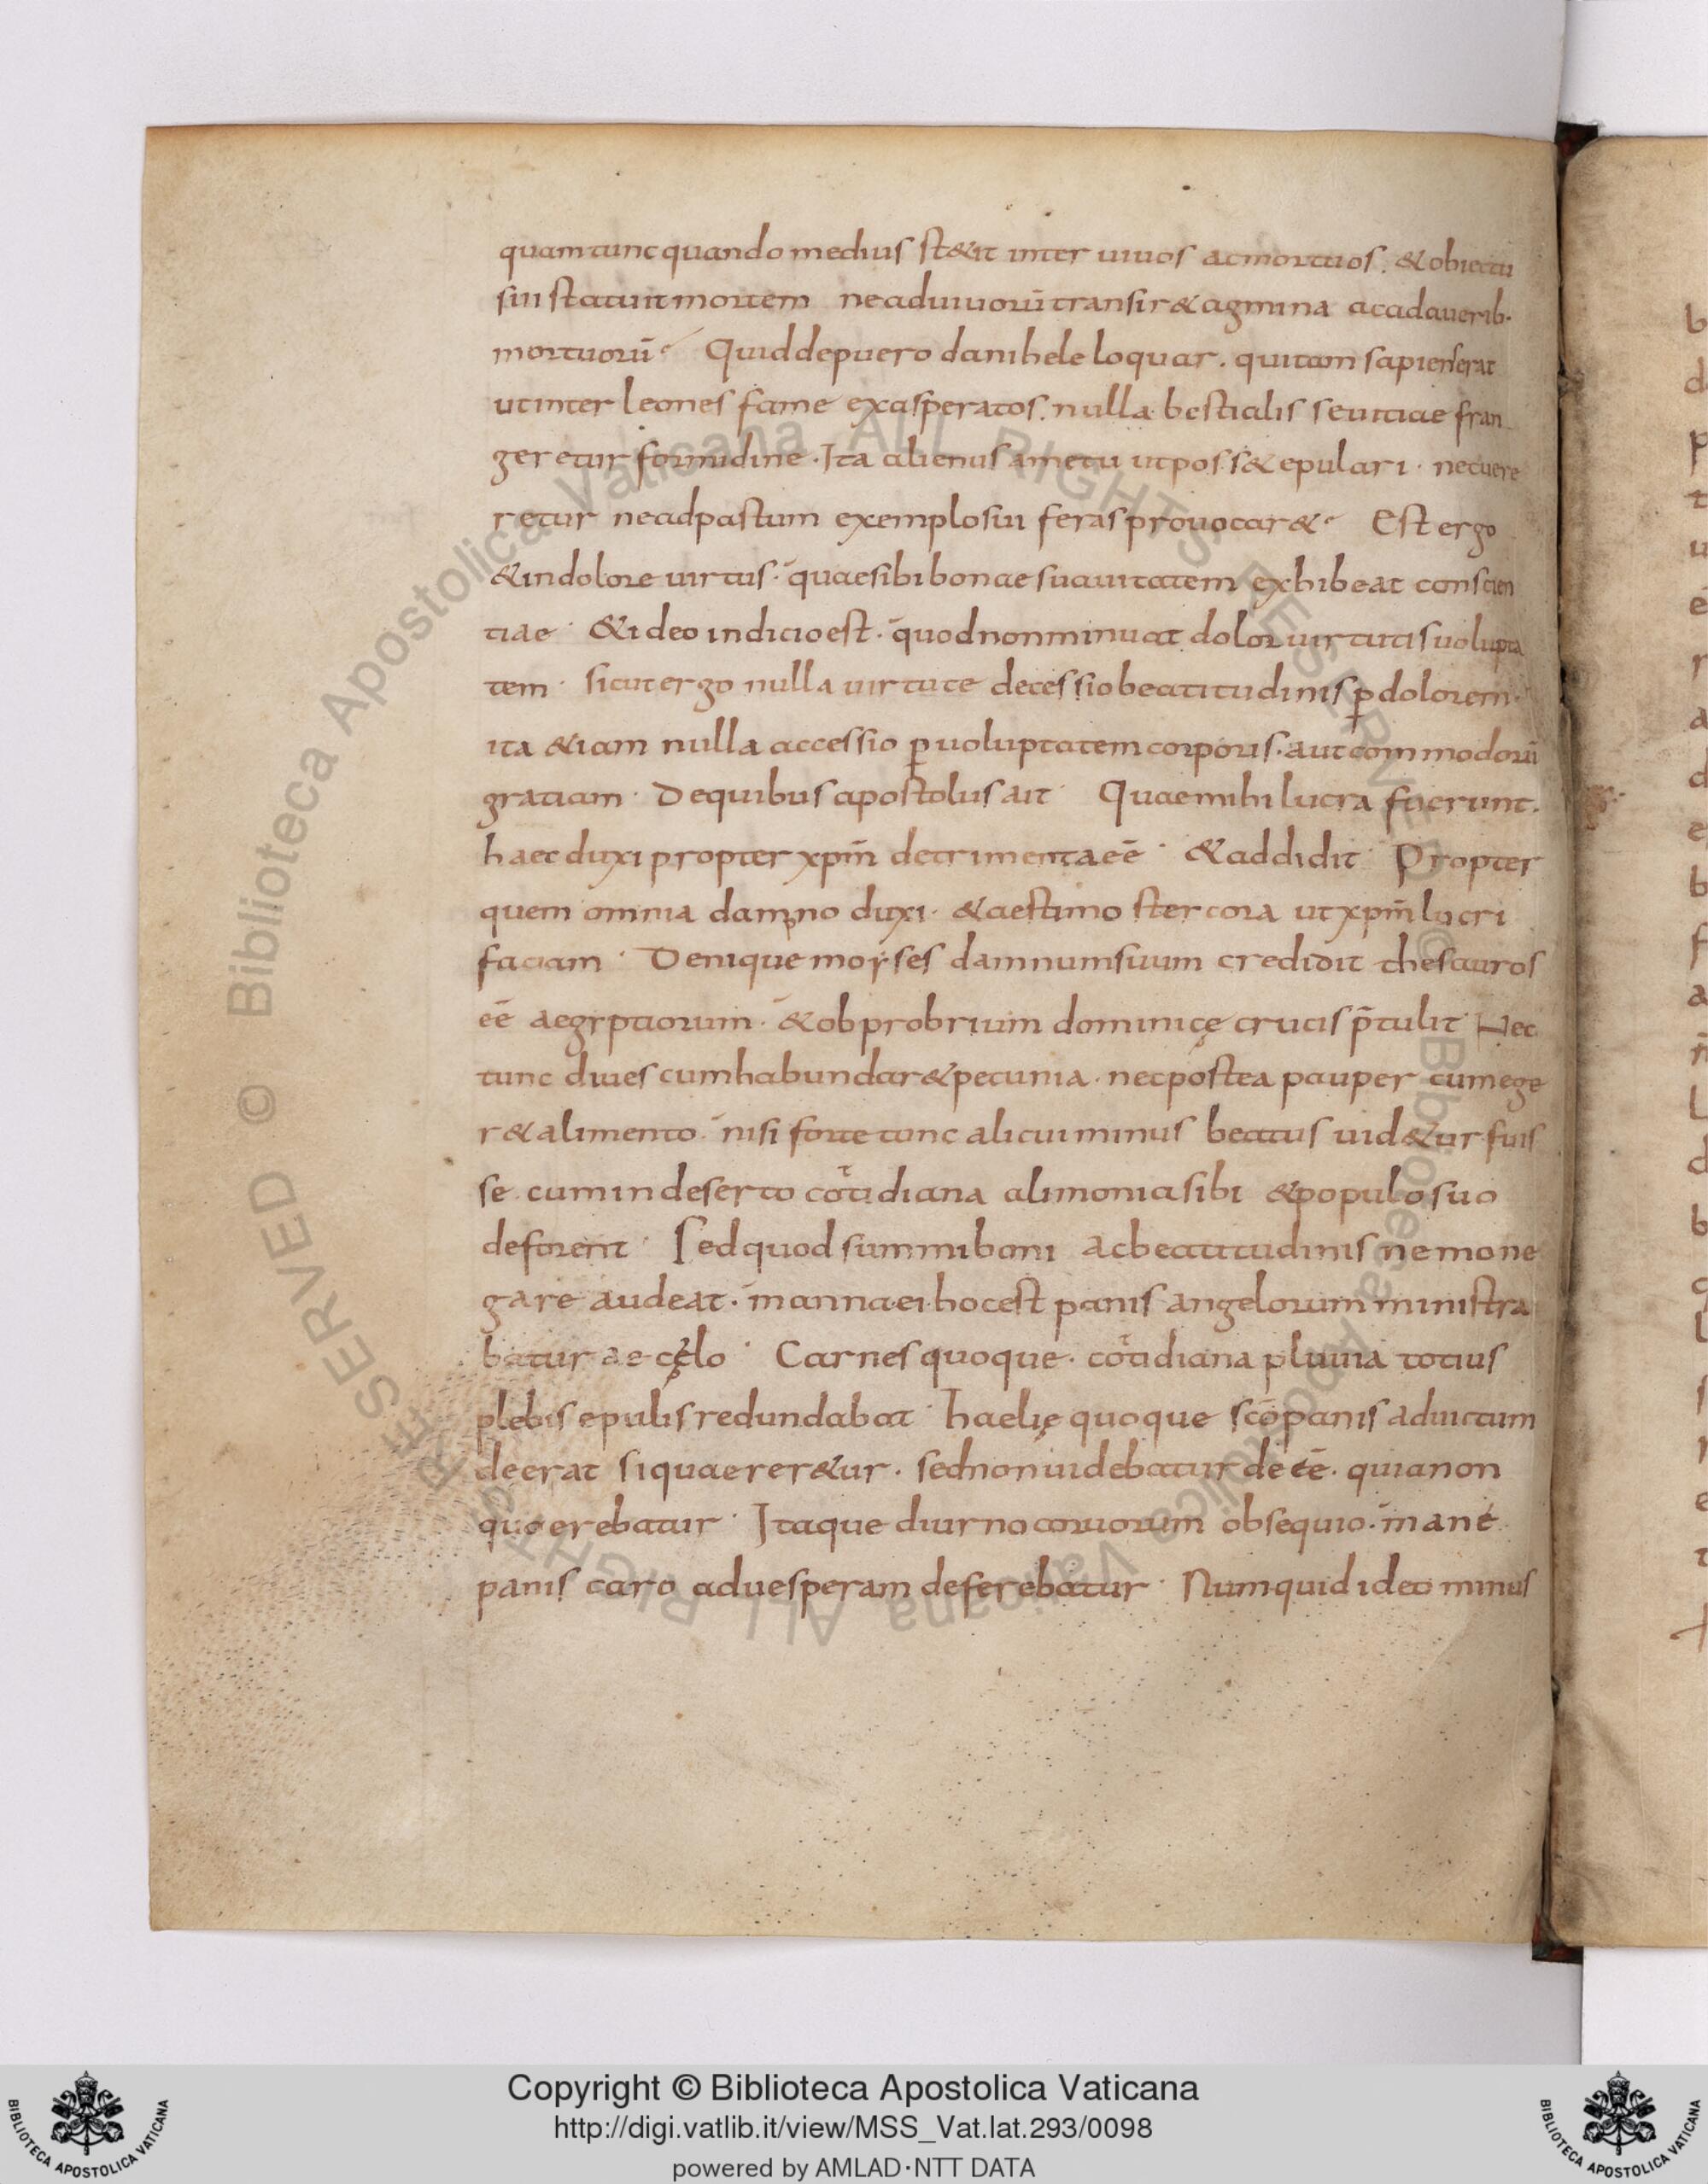 quam tunc quando medius st&it inter uiuos ac mortuos. & obiectu
sui statuit mortem ne ad uiuorū transir& agmina a cadauerib·
mortuorū· Quid de puero danihele loquar. qui tam sapiens erat
ut inter leones fame exasperatos. nulla bestialis seuitiae fran
geretur formidine. Ita alienus a metu ut poss& epulari. nec uere
retur ne ad pastum exemplo sui feras prouocar&· Est ergo
& in dolore uirtus. quae sibi bonae suauitatem exhibeat conscien
tiae· & ideo indicio est. quod non minuat dolor uirtutis uolupta
tem· sicut ergo nulla uirtute decessio beatitudinis ꝑ dolorem·
ita &iam nulla accessio ꝑ uoluptatem corporis. aut commodorū
gratiam· De quibus apostolus ait· Quae mihi lucra fuerunt.
haec duxi propter xp̄m detrimenta eē· & addidit· Propter
quem omnia damno duxi. & aestimo stercora ut xp̄m lucri
faciam· Denique moyses damnum suum credidit thesauros
eē aegyptiorum. & obprobrium dominicę crucis p̄tulit· Nec
tunc diues cum habundar& pecunia. nec postea pauper cum ege
r& alimento. nisi forte tunc alicui minus beatus uid&ur fuis
se. cum in deserto cotidiana alimonia sibi & populo suo
deforent· Sed quod summi boni ac beatitudinis nemo ne
gare audeat. manna ei hoc est panis angelorum ministra
batur a e cęlo· Carnes quoque. cotidiana pluuia totius
plebis epulis redundabat· haelię quoque scō panis ad uictum
deerat si quaerer&ur. sed non uidebatur deeē. quia non
quaerebatur· Itaque diurno coruorum obsequio. mane
panis caro ad uesperam deferebatur· Numquid ideo minus
Copyright © Biblioteca Apostolica Vaticana
http://digi.vatlib.it/view/MSS_Vat.lat.293/0098
powered by AMLAD·NTT DATA
BIBLIOTECA APOSTOLICA VATICANA
BIBLIOTECA APOSTOLICA VATICANA
© Biblioteca Apostolica Vaticana ALL RIGHTS RESERVED © Biblioteca Apostolica Vaticana ALL RIGHTS RESERVED